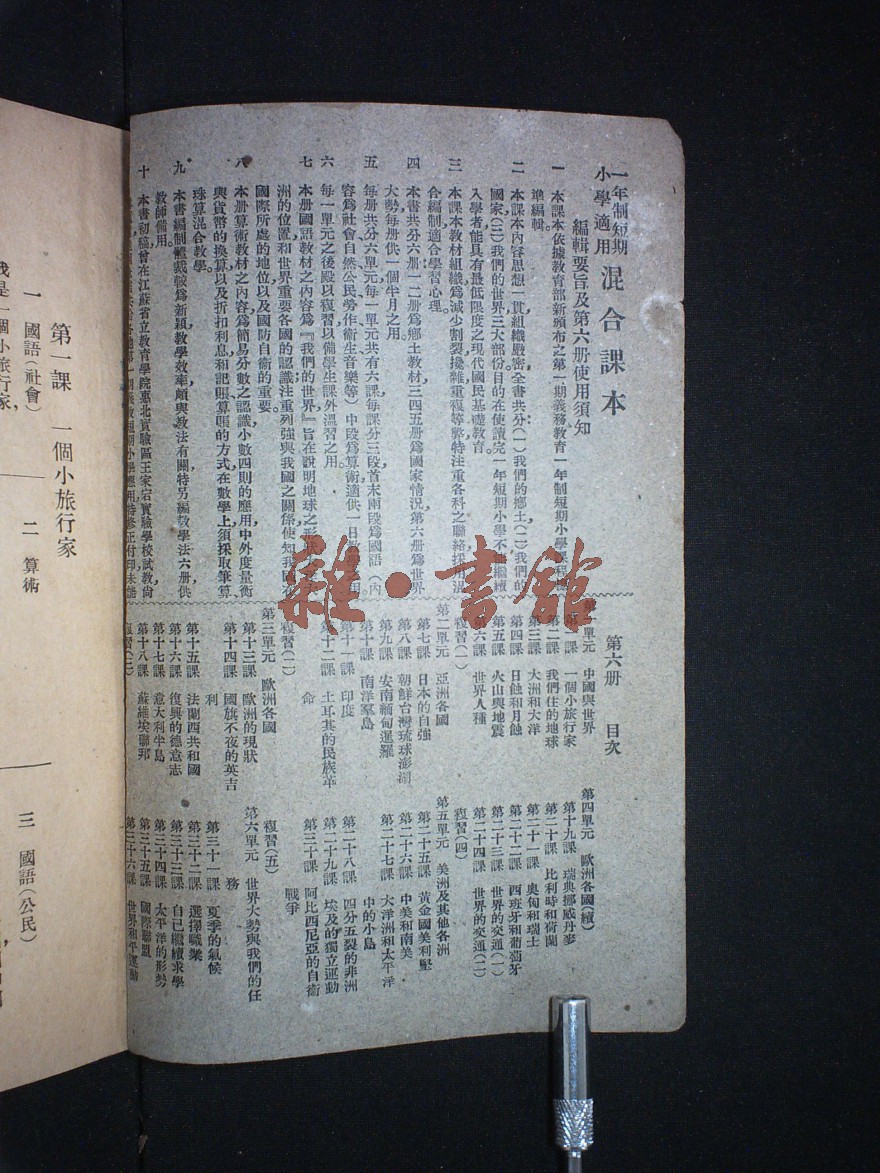 一年制短期
小學適用
混合課本
編輯要旨及第六册使用須知
一 本課本依據教育部新頒布之第一期義務教育一年制短期小學
準編輯。
二 本課本內容思想一貫組織嚴密全書共分(一)我們的鄉土(二)我們的
國家(三)我們的世界三大部份目的在使讀完一年短期小學不能繼續
入學者能具有最低限度之現代國民基礎教育。
三 本課本教材組織爲減少割裂攙雜重複等弊特注重各科之聯絡採用混
合編制適合學習心理。
四 本書共分六册一二册爲鄉土教材三四五册爲國家情況第六册爲世界
大勢每册供一個半月之用。
五 每册共分六單元每一單元共有六課每課分三段首末兩段爲國語(內
容爲社會自然公民勞作衞生音樂等)中段爲算術適供一日
六 每一單元之後殿以複習以備學生課外溫習之用。
七 本册國語教材之內容爲『我們的世界』旨在說明地球之形狀
洲的位置和世界重要各國的認識注重列強與我國之關係使知我國在
國際所處的地位以及國防自衞的重要。
八 本册算術教材之內容爲簡易分數之認識小數四則的應用中外度量衡
與貨幣的換算以及折扣利息和記賬算賬的方式在數學上須採取筆算
珠算混合教學。
九 本書編制體裁較爲新穎教學效率頗與教法有關特另編教學法六册供
教師備用。
十 本書初稿曾在江蘇省立教育學院惠北實驗區王家宕實驗學校試教尚
第一期義務教育短期小學應用特修正付印未諳
第六册 目次
單元 中國與世界
第一課 一個小旅行家
第二課 我們住的地球
第三課 大洲和大洋
第四課 日蝕和月蝕
第五課 火山與地震
第六課 世界人種
複習(一)
第二單元 亞洲各國
第七課 日本的自強
第八課 朝鮮台灣琉球澎湖
第九課 安南緬甸暹羅
第十課 南洋羣島
第十一課 印度
第十二課 土耳其的民族革
命
複習(二)
第三單元 歐洲各國
第十三課 歐洲的現狀
第十四課 國旗不夜的英吉
利
第十五課 法蘭西共和國
第十六課 復興的德意志
第十七課 意大利半島
第十八課 蘇維埃聯邦
複習(三)
第四單元 歐洲各國(續)
第十九課 瑞典挪威丹麥
第二十課 比利時和荷蘭
第二十一課 奧匈和瑞士
第二十二課 西班牙和葡萄牙
第二十三課 世界的交通(一)
第二十四課 世界的交通(二)
複習(四)
第五單元 美洲及其他各洲
第二十五課 黃金國美利堅
第二十六課 中美和南美
第二十七課 大洋洲和太平洋
中的小島
第二十八課 四分五裂的非洲
第二十九課 埃及的獨立運動
第三十課 阿比西尼亞的自衞
戰爭
複習(五)
第六單元 世界大勢與我們的任
務
第三十一課 夏季的氣候
第三十二課 選擇職業
第三十三課 自己繼續求學
第三十四課 太平洋的形勢
第三十五課 國際聯盟
第三十六課 世界和平運動
第一課 一個小旅行家
一 國語(社會)
我是一個小旅行家,
二 算術
三 國語(公民)
雜·書館